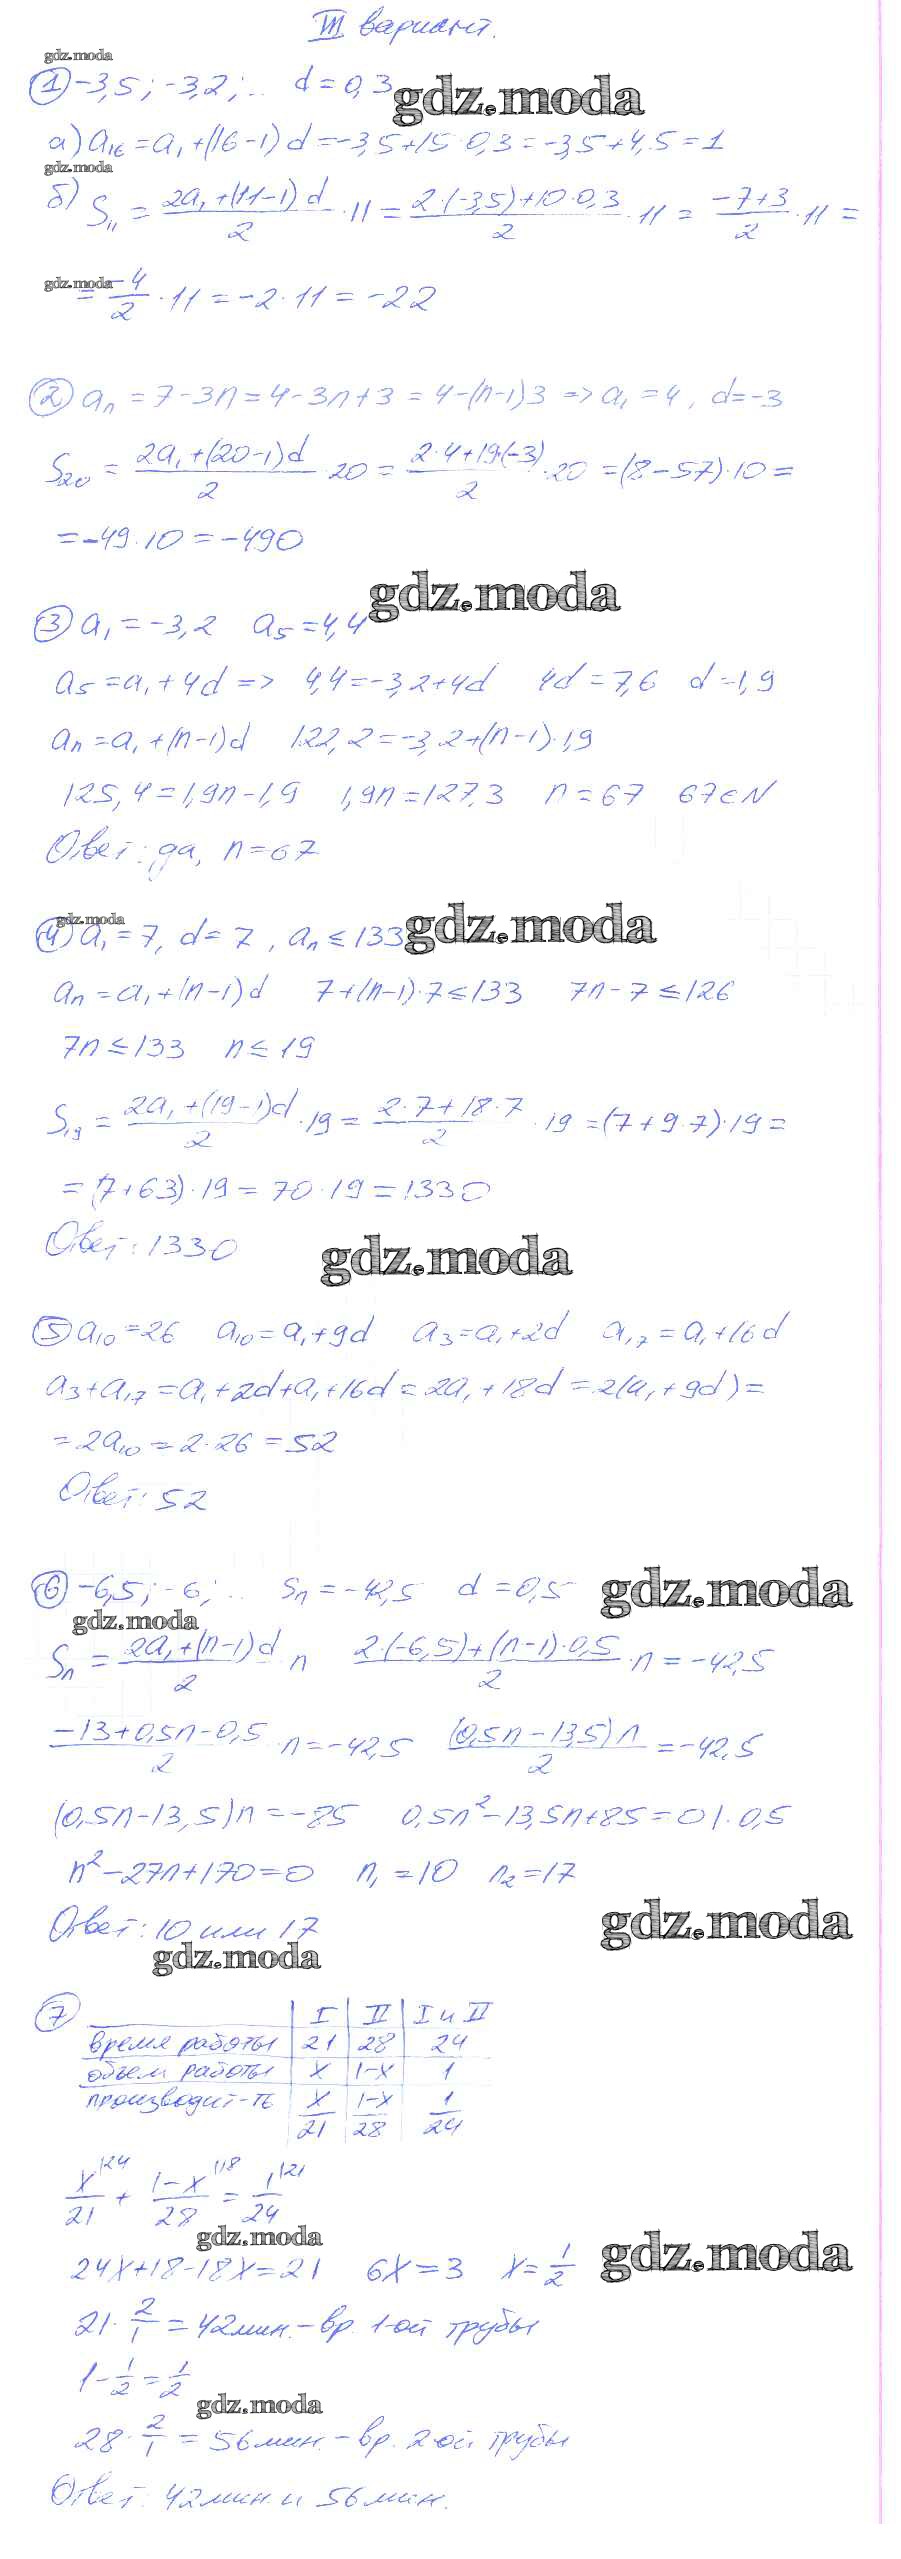 III вариант.
gdz.moda
1) -3,5; -3,2; .. d = 0,3
gdz.moda
а) a₁₆ = a₁ + (16-1) d = -3,5 + 15·0,3 = -3,5 + 4,5 = 1
gdz.moda
б) S₁₁ = (2a₁ + (11-1) d)/2 · 11 = (2·(-3,5) + 10·0,3)/2 · 11 = (-7+3)/2 · 11 =
gdz.moda
= -4/2 · 11 = -2 · 11 = -22
2) aₙ = 7 - 3n = 4 - 3n + 3 = 4 - (n-1)3 => a₁ = 4, d = -3
S₂₀ = (2a₁ + (20-1) d)/2 · 20 = (2·4 + 19·(-3))/2 · 20 = (8 - 57)·10 =
= -49·10 = -490
gdz.moda
3) a₁ = -3,2 a₅ = 4,4
a₅ = a₁ + 4d => 4,4 = -3,2 + 4d 4d = 7,6 d = 1,9
aₙ = a₁ + (n-1) d 122,2 = -3,2 + (n-1)·1,9
125,4 = 1,9n - 1,9 1,9n = 127,3 n = 67 67 ∈ N
Ответ: да, n = 67
gdz.moda
4) a₁ = 7, d = 7, aₙ ≤ 133
gdz.moda
aₙ = a₁ + (n-1) d 7 + (n-1)·7 ≤ 133 7n - 7 ≤ 126
7n ≤ 133 n ≤ 19
S₁₉ = (2a₁ + (19-1)d)/2 · 19 = (2·7 + 18·7)/2 · 19 = (7 + 9·7)·19 =
= (7 + 63)·19 = 70·19 = 1330
Ответ: 1330
gdz.moda
5) a₁₀ = 26 a₁₀ = a₁ + 9d a₃ = a₁ + 2d a₁₇ = a₁ + 16d
a₃ + a₁₇ = a₁ + 2d + a₁ + 16d = 2a₁ + 18d = 2(a₁ + 9d) =
= 2a₁₀ = 2·26 = 52
Ответ: 52
6) -6,5; -6; .. Sₙ = -42,5 d = 0,5
gdz.moda
gdz.moda
Sₙ = (2a₁ + (n-1) d)/2 · n (2·(-6,5) + (n-1)·0,5)/2 · n = -42,5
(-13 + 0,5n - 0,5)/2 · n = -42,5 ((0,5n - 13,5) n)/2 = -42,5
(0,5n - 13,5) n = -85 0,5n² - 13,5n + 85 = 0 |· 0,5
n² - 27n + 170 = 0 n₁ = 10 n₂ = 17
Ответ: 10 или 17
gdz.moda
gdz.moda
7) I II I и II
время работы 21 28 24
объем работы x 1-x 1
производит-ть x/21 (1-x)/28 1/24
x|24/21 + (1-x)|18/28 = 1|21/24
gdz.moda
24x + 18 - 18x = 21 6x = 3 x = 1/2
gdz.moda
21 · 2/1 = 42 мин. - вр. 1-ой трубы
1 - 1/2 = 1/2
gdz.moda
28 · 2/1 = 56 мин. - вр. 2-ой трубы
Ответ: 42 мин. и 56 мин.